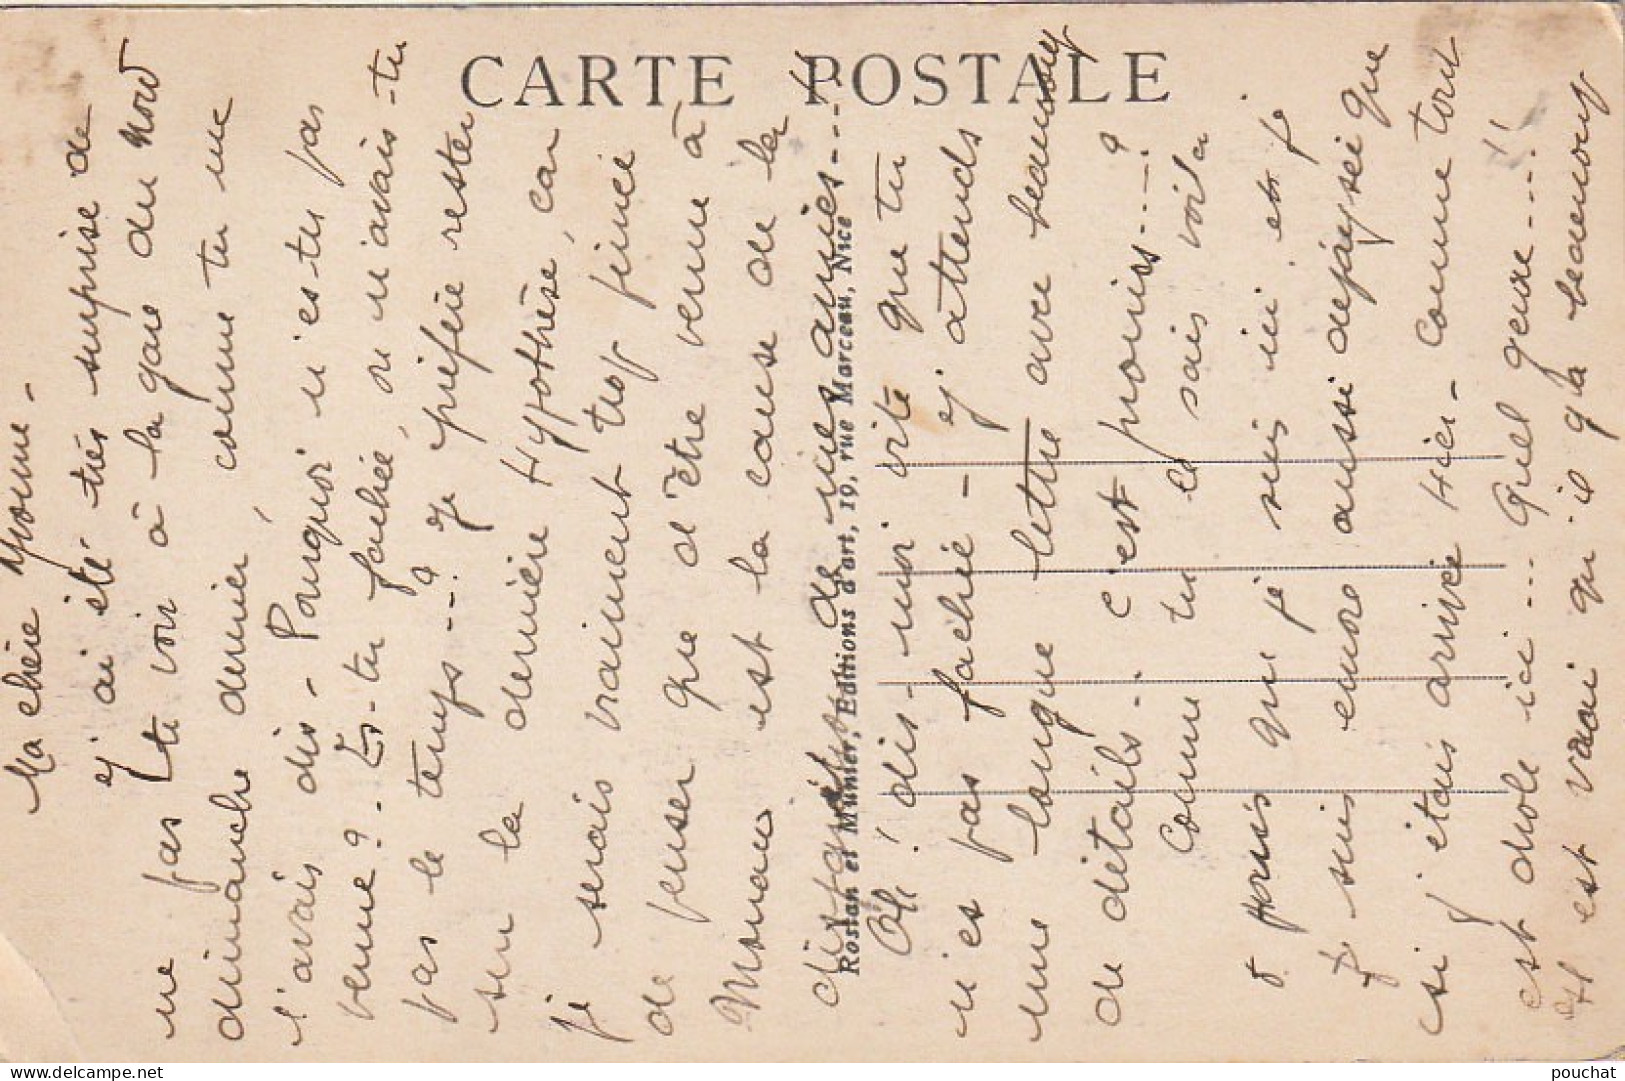 CARTE POSTALE
Rostan et Munier, Editions d'art, 19, rue Marceau, Nice
Ma chère Yvonne -
j'ai été très surprise de
ne pas te voir à la gare du Nord
dimanche dernier, comme tu me
l'avais dis - Pourquoi n'es tu pas
venue ? - Es-tu fachée, ou n'avais-tu
pas le temps --- ? Je préfère rester
sur la dernière hypothèse, car
je serais vraiment trop peinée
de penser que d'être venue à
Monaco est la cause de la
disparition de nos amies ----
Oh ! dis-moi vite que tu
n'es pas fachée - j'attends
une longue lettre avec beaucoup
de détails.. c'est promis ---- ?
Comme tu le sais voila
8 jours que je suis ici et je
suis encore aussi dépaysée que
si j'étais arrivée Hier - comme tout
est drole ici ... Quel genre .... !!
Il est vrai qu'il y a beaucoup